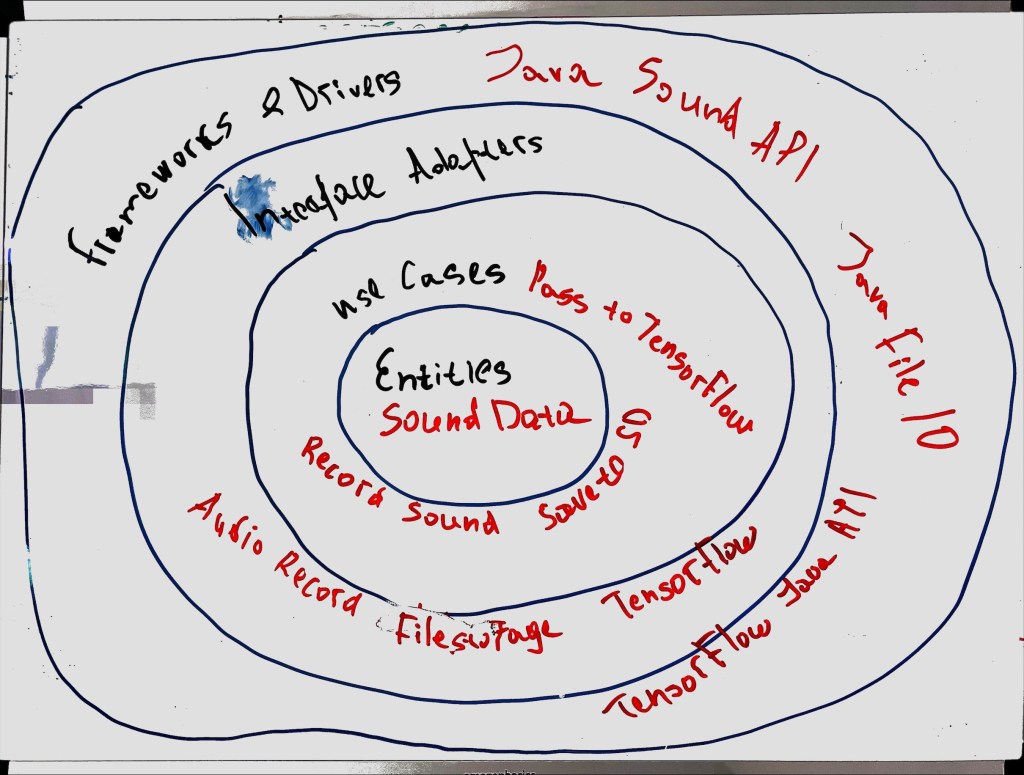 Frameworks & Drivers
Java Sound API
Interface Adapters
Java File IO
use Cases
Pass to TensorFlow
Entities
Sound Data
Record Sound
Save to OS
Audio Record
Filestorage
TensorFlow
TensorFlow Java API